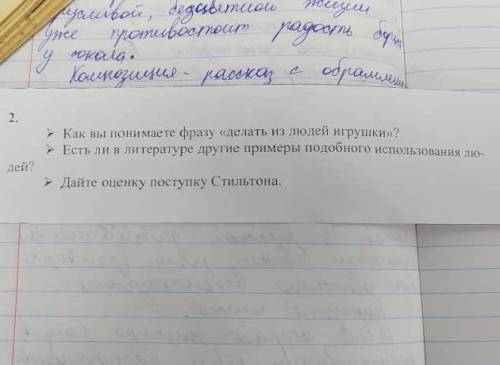 бесцветной жизни
уже противостоит радость
у
Композиция - рассказ с обрамлени
2.
➤ Как вы понимаете фразу «делать из людей игрушки»?
➤ Есть ли в литературе другие примеры подобного использования лю-
дей?
➤ Дайте оценку поступку Стильтона.